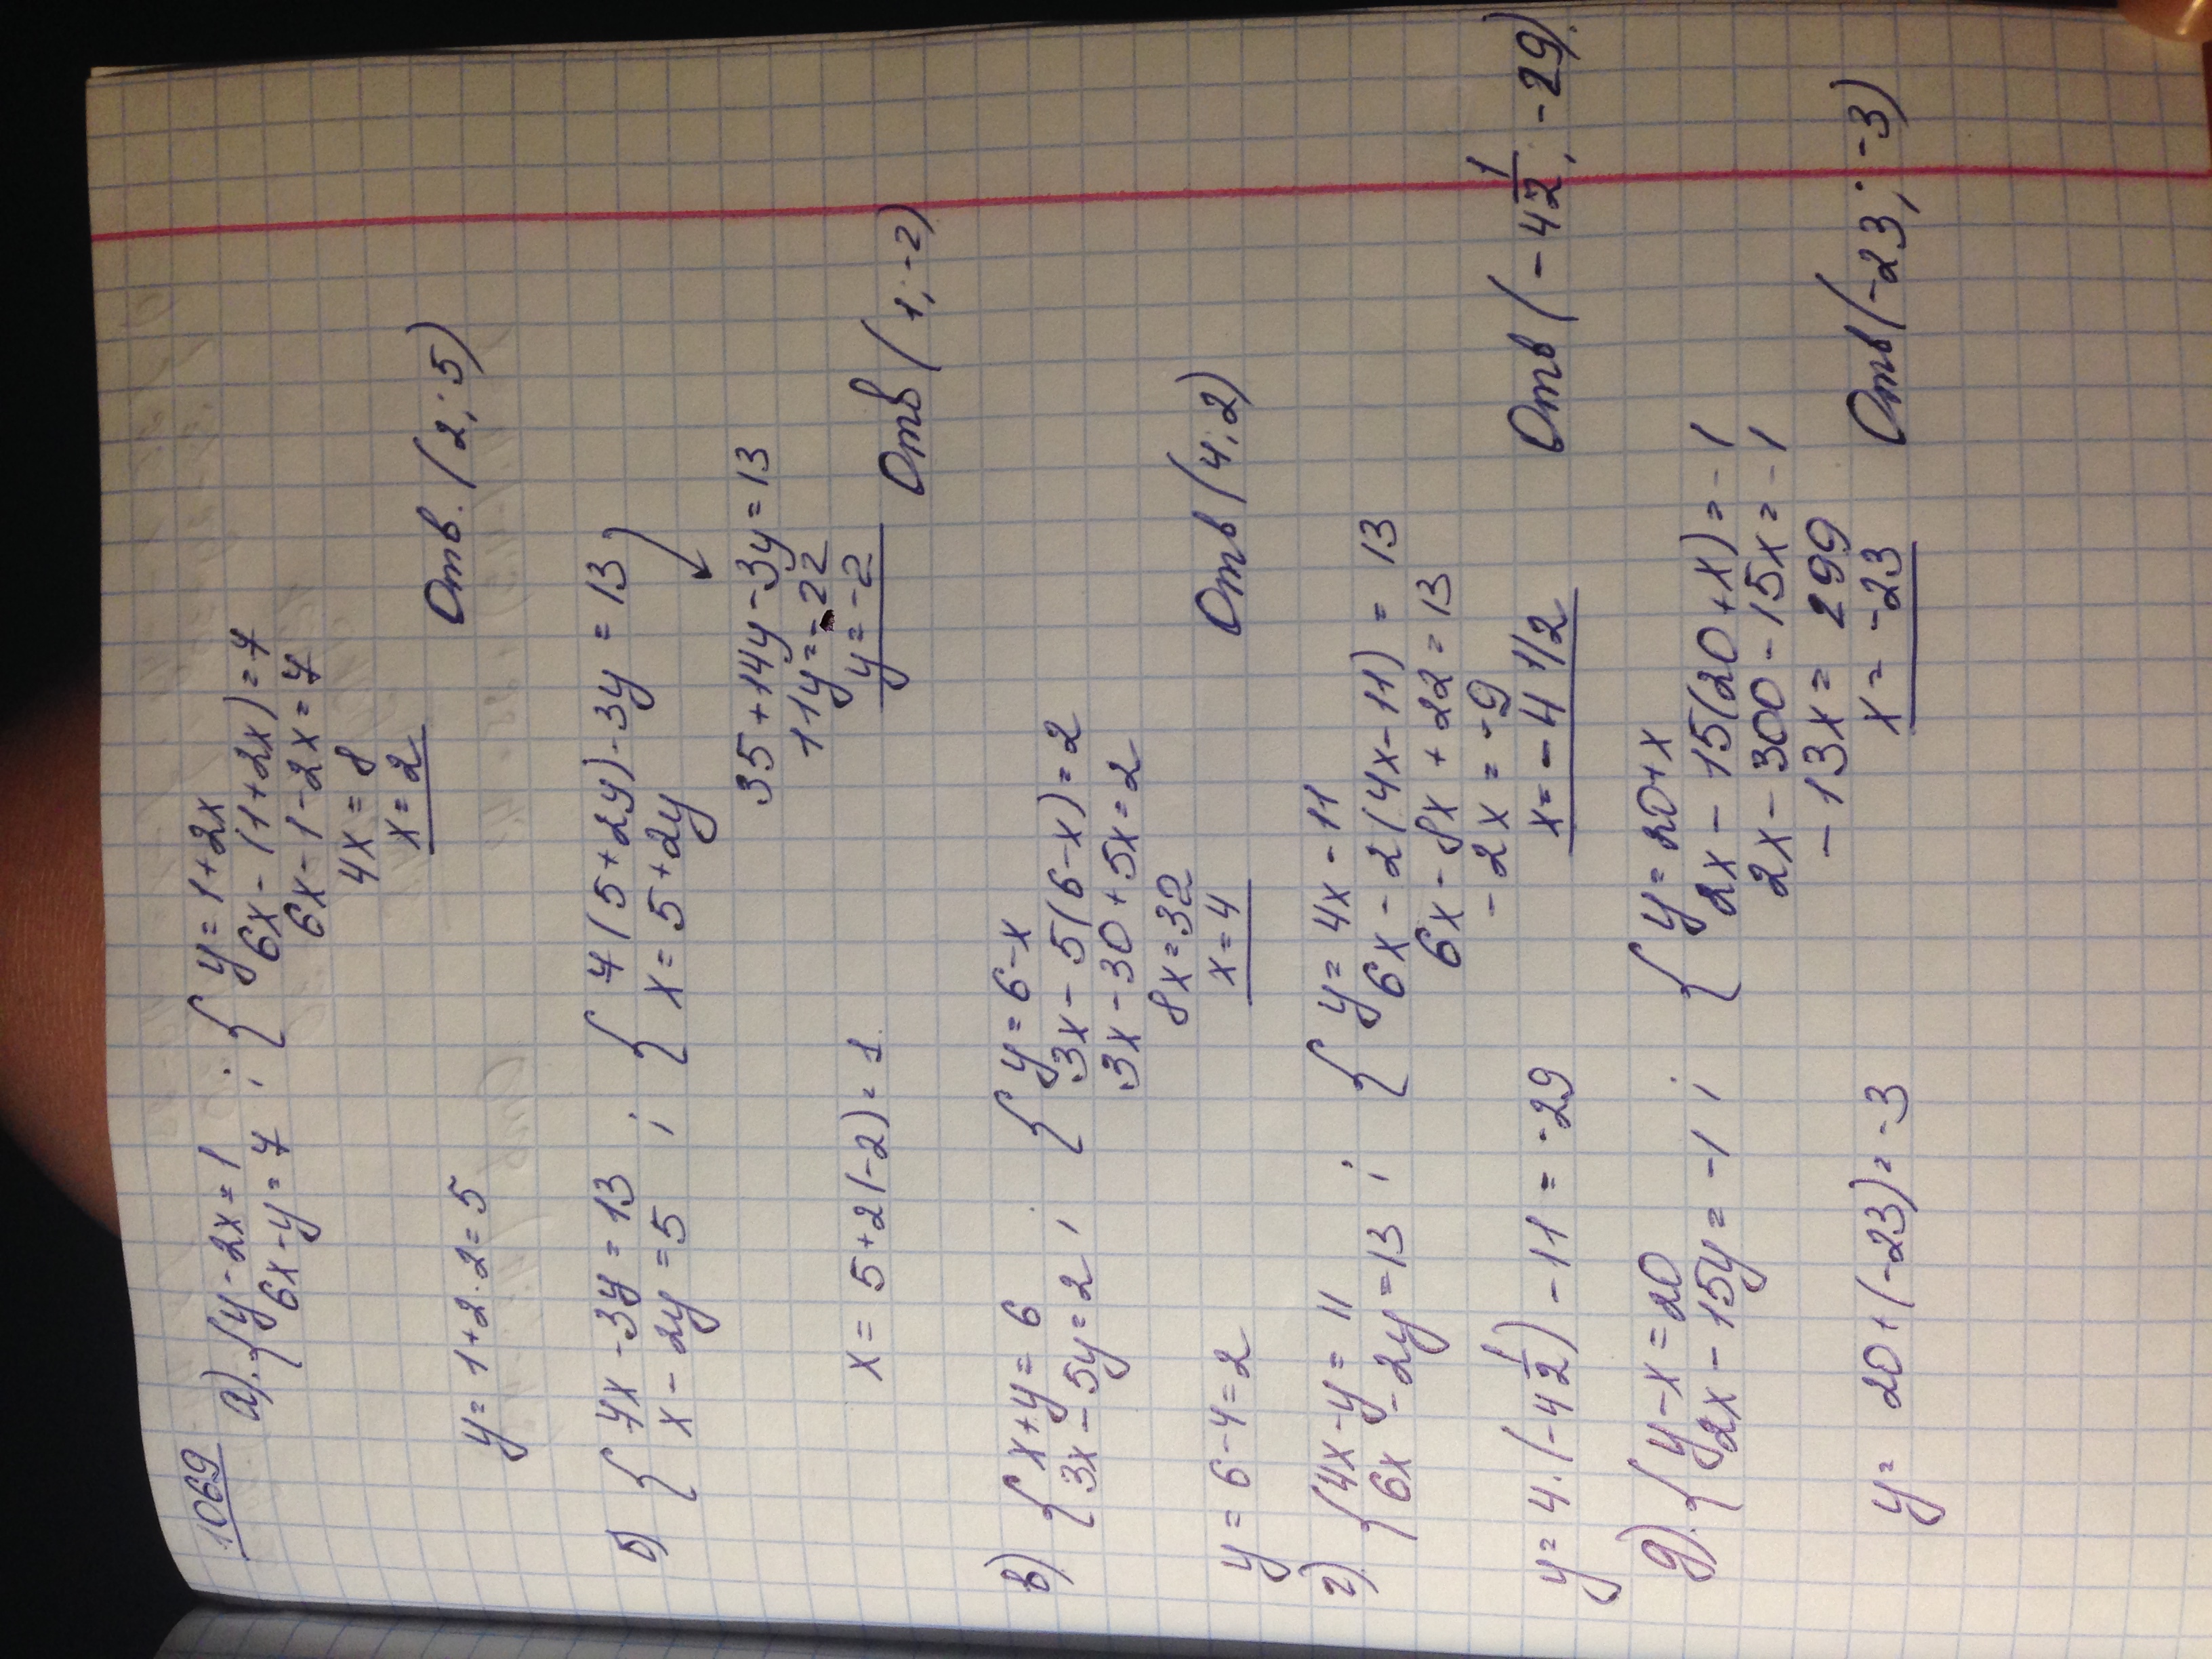 1069
а) { y - 2x = 1 ; { y = 1 + 2x
6x - y = 7 6x - (1 + 2x) = 7
6x - 1 - 2x = 7
4x = 8
x = 2
y = 1 + 2 · 2 = 5 Отв. (2; 5)
б) { 7x - 3y = 13 { 7(5 + 2y) - 3y = 13
x - 2y = 5 ; x = 5 + 2y
35 + 14y - 3y = 13
11y = -22
y = -2
x = 5 + 2(-2) = 1 Отв (1; -2)
в) { x + y = 6 { y = 6 - x
3x - 5y = 2 ; 3x - 5(6 - x) = 2
3x - 30 + 5x = 2
8x = 32
x = 4
y = 6 - 4 = 2 Отв (4; 2)
г) { 4x - y = 11 { y = 4x - 11
6x - 2y = 13 ; 6x - 2(4x - 11) = 13
6x - 8x + 22 = 13
-2x = -9
x = -4 1/2
y = 4 · (-4 1/2) - 11 = -29 Отв (-4 1/2; -29).
д) { y - x = 20 { y = 20 + x
2x - 15y = -1 ; 2x - 15(20 + x) = -1
2x - 300 - 15x = -1
-13x = 299
x = -23
y = 20 + (-23) = -3 Отв (-23; -3)